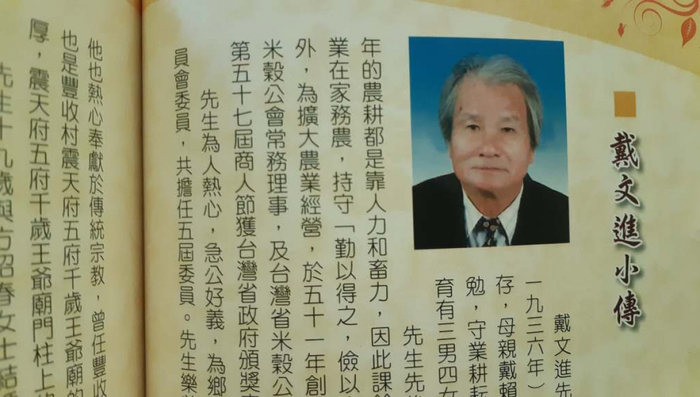 戴文進小傳
戴文進先
一九三六年)
存,母親戴賴
勉,守業耕耘
育有三男四女
先生先
年的農耕都是靠人力和畜力,因此課餘
業在家務農,持守「勤以得之,儉以
外,為擴大農業經營,於五十一年創
米穀公會常務理事,及台灣省米穀公
第五十七屆商人節獲台灣省政府頒獎
先生為人熱心,急公好義,為鄉
員會委員,共擔任五屆委員。先生樂
他也熱心奉獻於傳統宗教,曾任豐收
也是豐收村震天府五府千歲王爺廟的
厚,震天府五府千歲王爺廟門柱上
先生十九歲與方招春女士結